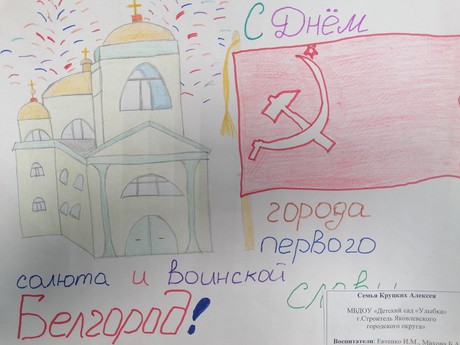 С Днём
города
первого
салюта и воинской
славы
Белгород!
Семья Круцких Алексея
МБДОУ «Детский сад «Улыбка»
г.Строитель Яковлевского
городского округа»
Воспитатели: Евтешко Н.М.,